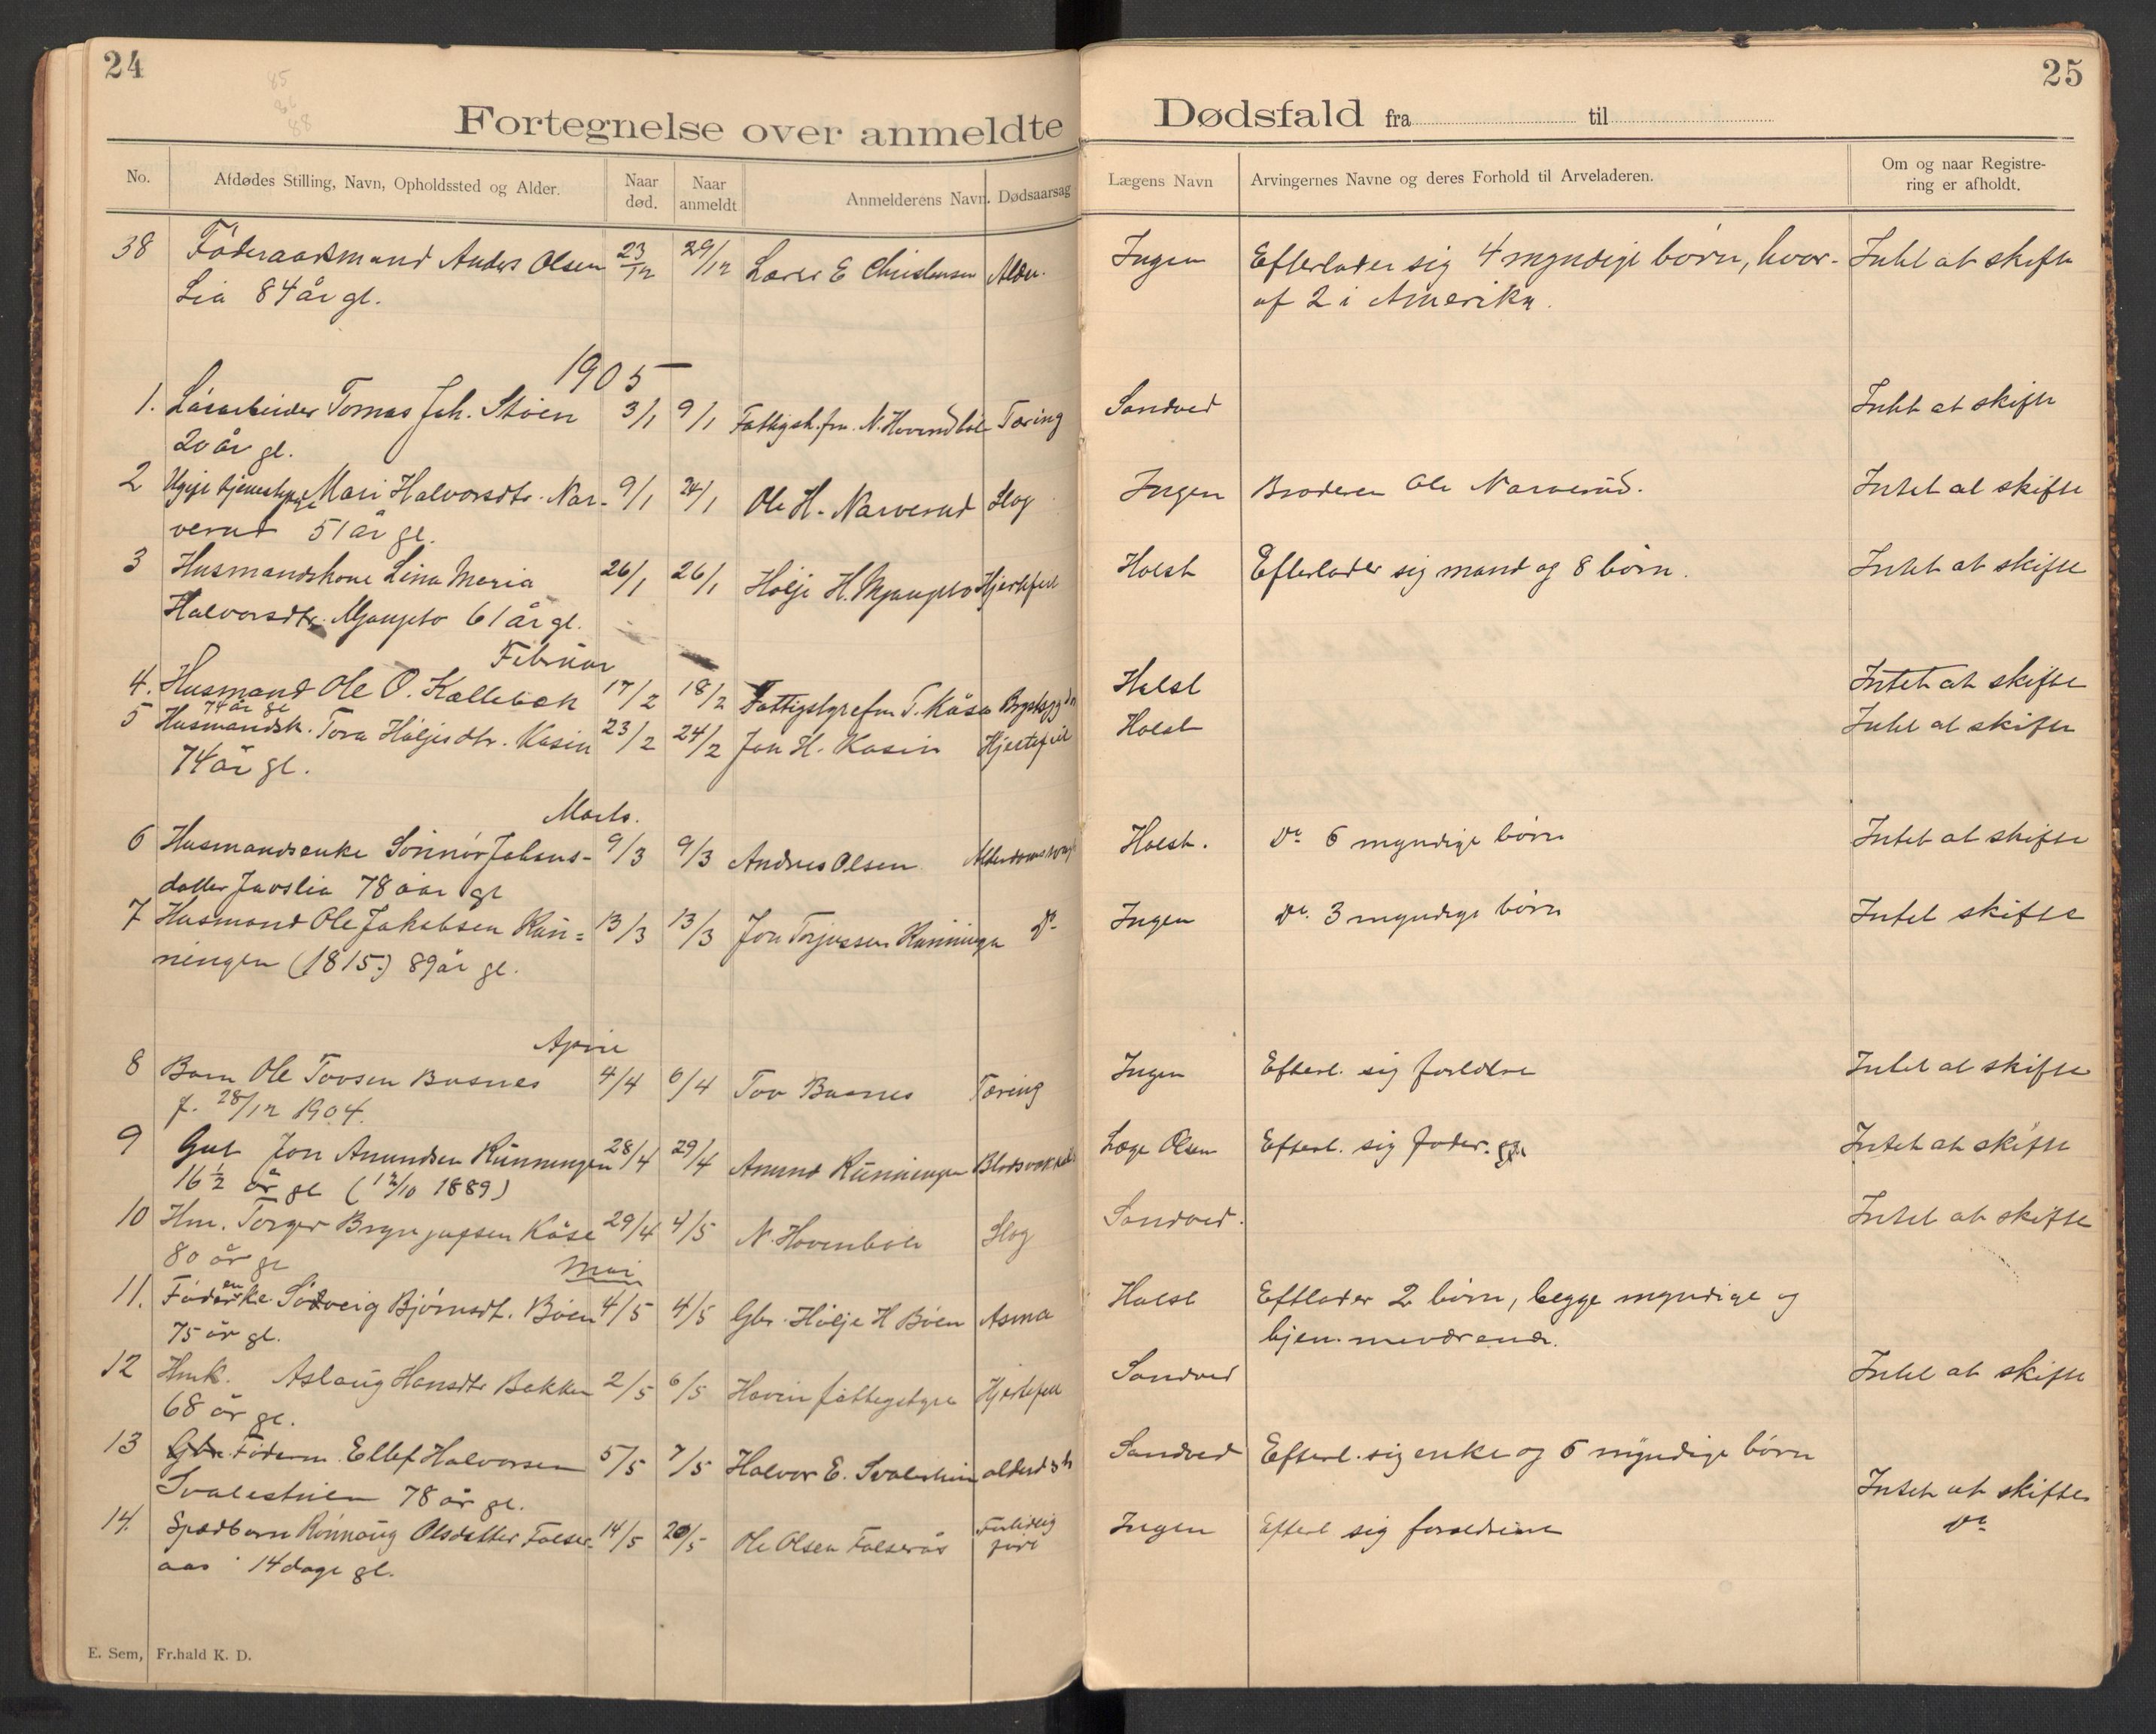 24
25
85
86
88
Fortegnelse over anmeldte Dødsfald fra til
No. Afdødes Stilling, Navn, Opholdssted og Alder. Naar død. Naar anmeldt Anmelderens Navn. Dødsaarsag Lægens Navn Arvingernes Navne og deres Forhold til Arveladeren. Om og naar Registrering er afholdt.
38 Föderaadsmand Anders Olsen 23/12 29/12 Lærer E Christensen Alder. Ingen Efterlader sig 4 myndige börn, hvor- Intet at skifte
Lia 84 år gl. af 2 i Amerika.
1905
1. Løsarbeider Tomas Joh. Stöen 3/1 9/1 Fattigst. N. Hovendböle Tæring Sandved Intet at skifte
20 år gl.
2 Ugift tjenestepige Mari Halvorsdtr. Nar- 9/1 24/1 Ole H. Narverud Slag Ingen Broderen Ole Narverud. Intet at skifte
verud 51 år gl.
3 Husmandskone Lina Maria 26/1 26/1 Hölje H. Mjaugeto Hjertefeil Holst Efterlader sig mand og 8 börn. Intet at skifte
Halvorsdtr. Mjaugeto 61 år gl.
Februar
4. Husmand Ole O. Kallebæk 17/2 18/2 T. Kåsa Holst Intet at skifte
74 år gl
5 Husmandsk. Tora Höljesdtr. Kasin 23/2 24/2 Jon H. Kasin Hjertefeil Holst Intet at skifte
74 år gl.
Marts.
6 Husmandsenke Sönnöv Johans- 9/3 9/3 Andres Olsen Holst. Do 6 myndige börn Intet at skifte
datter Juvslia 78 aar gl
7 Husmand Ole Jakobsen Kun= 13/3 13/3 Jon Torjussen Kunningen Do Ingen Do. 3 myndige börn Intet skifte
ningen (1815.) 89 år gl.
April
8 Barn Ole Tovsen Busnes 4/4 6/4 Tov Busnes Tæring Ingen Efterl. sig forældre Intet at skifte
f. 28/12 1904.
9 Gut Jon Amundsen Kunningen 28/4 29/4 Amund Kunningen Læge Olsen Efterl. sig fader. Intet at skifte
16 ½ år gl (12/10 1889)
10 Hm. Torger Brynjufsen Kåse 29/4 4/5 N. Hovenbole Slag Sandved. Intet at skifte
80 år gl
Mai
11. Föderenke Solveig Björnsdt. Böen 4/5 4/5 Gbr. Hölje H Böen Asma Holst Eftlader 2 börn, begge myndige og
75 år gl. hjemmeværende.
12 Hmk. Aslaug Hansdtr Bakken 2/5 6/5 Hovin fattigstyre Hjertefeil Sandved Intet at skifte
68 år gl.
13 Gbr. Föderm. Ellef Halvorsen 5/5 7/5 Halvor E. Svalestuen Sandved Efterl. sig enke og 5 myndige börn
Svalestuen 78 år gl. Intet at skifte
14. Spædbarn Rönnaug Olsdatter Folser- 14/5 20/5 Ole Olsen Folserås Fortidlig født Ingen Efterl sig forældrene Do
aas 14 dage gl.
E. Sem, Fr.hald K. D.